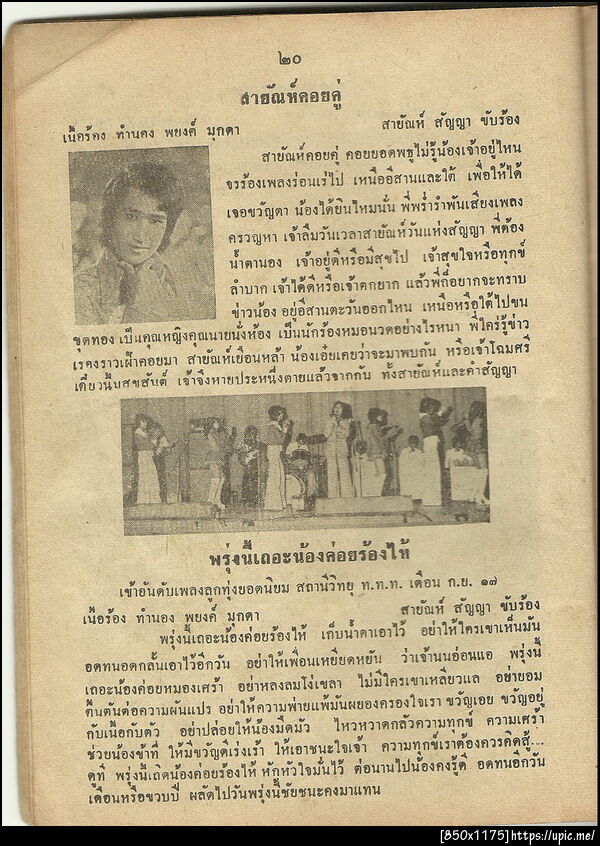 ๒๐
สายัณห์คอยคู่
เนื้อร้อง ทำนอง พยงค์ มุกดา
สายัณห์ สัญญา ขับร้อง
สายัณห์คอยคู่ คอยยอดพธูไม่รู้น้องเจ้าอยู่ไหน
จรร้องเพลงร่อนเร่ไป เหนืออีสานและใต้ เพื่อให้ได้
เจอขวัญตา น้องได้ยินไหมนั่น พี่พร่ำรำพันเสียงเพลง
ครวญหา เจ้าลืมวันเวลาสายัณห์วันแห่งสัญญา พี่ต้อง
น้ำตานอง เจ้าอยู่ดีหรือมีสุขไป เจ้าสุขใจหรือทุกข์
ลำบาก เจ้าได้ดีหรือเจ้าตกยาก แล้วพี่ก็อยากจะทราบ
ข่าวน้อง อยู่อีสานตะวันออกไหน เหนือหรือใต้ไปขน
ขุดทอง เป็นคุณหญิงคุณนายนั่งห้อง เป็นนักร้องหมอนวดอย่างไรหนา พี่ใคร่รู้ข่าว
เรื่องราวเฝ้าคอยมา สายัณห์เยือนหล้า น้องเอ๋ยเคยว่าจะมาพบกัน หรือเจ้าโฉมศรี
เดี๋ยวนี้นสุขสันต์ เจ้าจึงหายประหนึ่งตายแล้วจากกัน ทั้งสายัณห์และคำสัญญา
พรุ่งนี้เถอะน้องค่อยร้องไห้
เข้าอันดับเพลงลูกทุ่งยอดนิยม สถานีวิทยุ ท.ท.ท. เดือน ก.ย. ๑๗
เนื้อร้อง ทำนอง พยงค์ มุกดา
สายัณห์ สัญญา ขับร้อง
พรุ่งนี้เถอะน้องค่อยร้องไห้ เก็บน้ำตาเอาไว้ อย่าให้ใครเขาเห็นมัน
อดทนอดกลั้นเอาไว้อีกวัน อย่าให้เพื่อนเหยียดหยัน ว่าเจ้านนอ่อนแอ พรุ่งนี้
เถอะน้องค่อยหมองเศร้า อย่าหลงลมโง่เขลา ไม่มีใครเขาเหลียวแล อย่ายอม
ตื้นตันต่อความผันแปร อย่าให้ความพ่ายแพ้มันผยองครองใจเรา ขวัญเอย ขวัญอยู่
กับเนื้อกับตัว อย่าปล่อยให้น้องมืดมัว ไหวหวาดกลัวความทุกข์ ความเศร้า
ช่วยน้องข้าที่ ให้มีขวัญดีเร่งเร้า ให้เอาชนะใจเจ้า ความทุกข์เราต้องควรคิดสู้...
ดูที่ พรุ่งนี้เถิดน้องค่อยร้องไห้ หักหัวใจมั่นไว้ ต่อนานไปน้องคงรู้ดี อดทนอีกวัน
เดือนหรือขวบปี ผลัดไปวันพรุ่งนี้ชัยชนะคงมาแทน
[850x1175]https://upic.me/